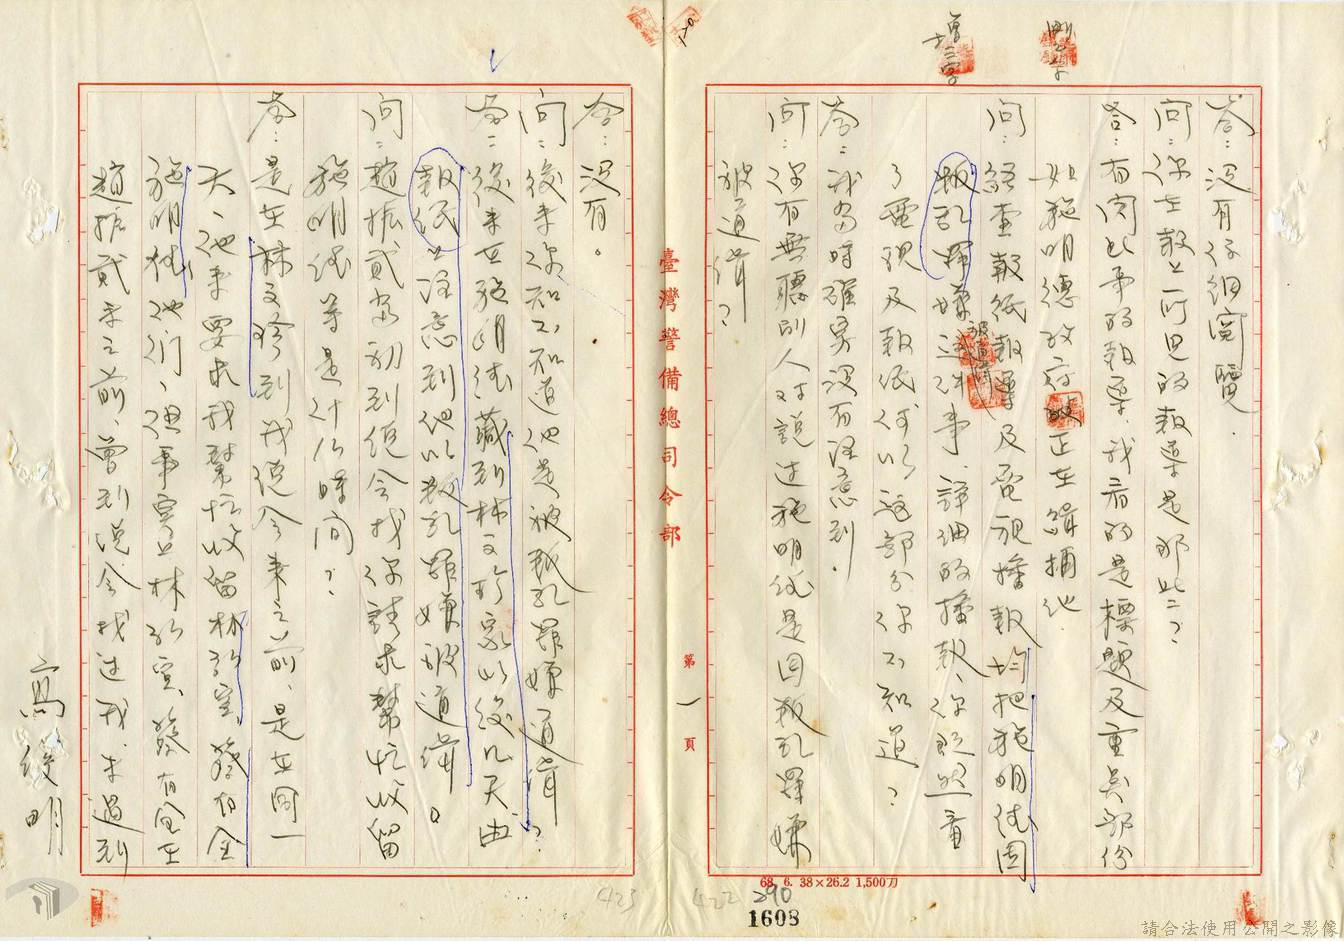 增三字
刪二字
答：沒有仔細閱覽．
問：你在報上所見的報導是那些？
答：有關此事的報導，我看的是標題及重點部份
如施明德政府正在緝捕他．
問：經查報紙報導及電視播報均把施明德因
叛亂罪嫌被通緝事，詳細的播報，你既然看
了電視及報紙何以這部分你不知道？
答：我當時確實沒有注意到．
問：你有無聽別人對說過施明德是因叛亂罪嫌
被通緝？
臺灣警備總司令部
第一頁
68. 6. 38×26.2 1,500刀
422
290
1603
答：沒有。
問：後來你知不知道他是被叛亂罪嫌通緝？
答：後來在施明德藏到林文珍家以後几天由
報紙上注意到他以叛亂罪嫌被通緝。
問：趙振貳當初到總會找你請求幫忙收留
施明德等是什么時間？
答：是在林文珍到我總會來之前，是在同一
天，他來要求我幫忙收留林弘宣蔡有全
施明德他們，但事實上林弘宣、蔡有全在
趙振貳來之前，曾到總會找過我，未過到
高俊明
423
請合法使用公開之影像